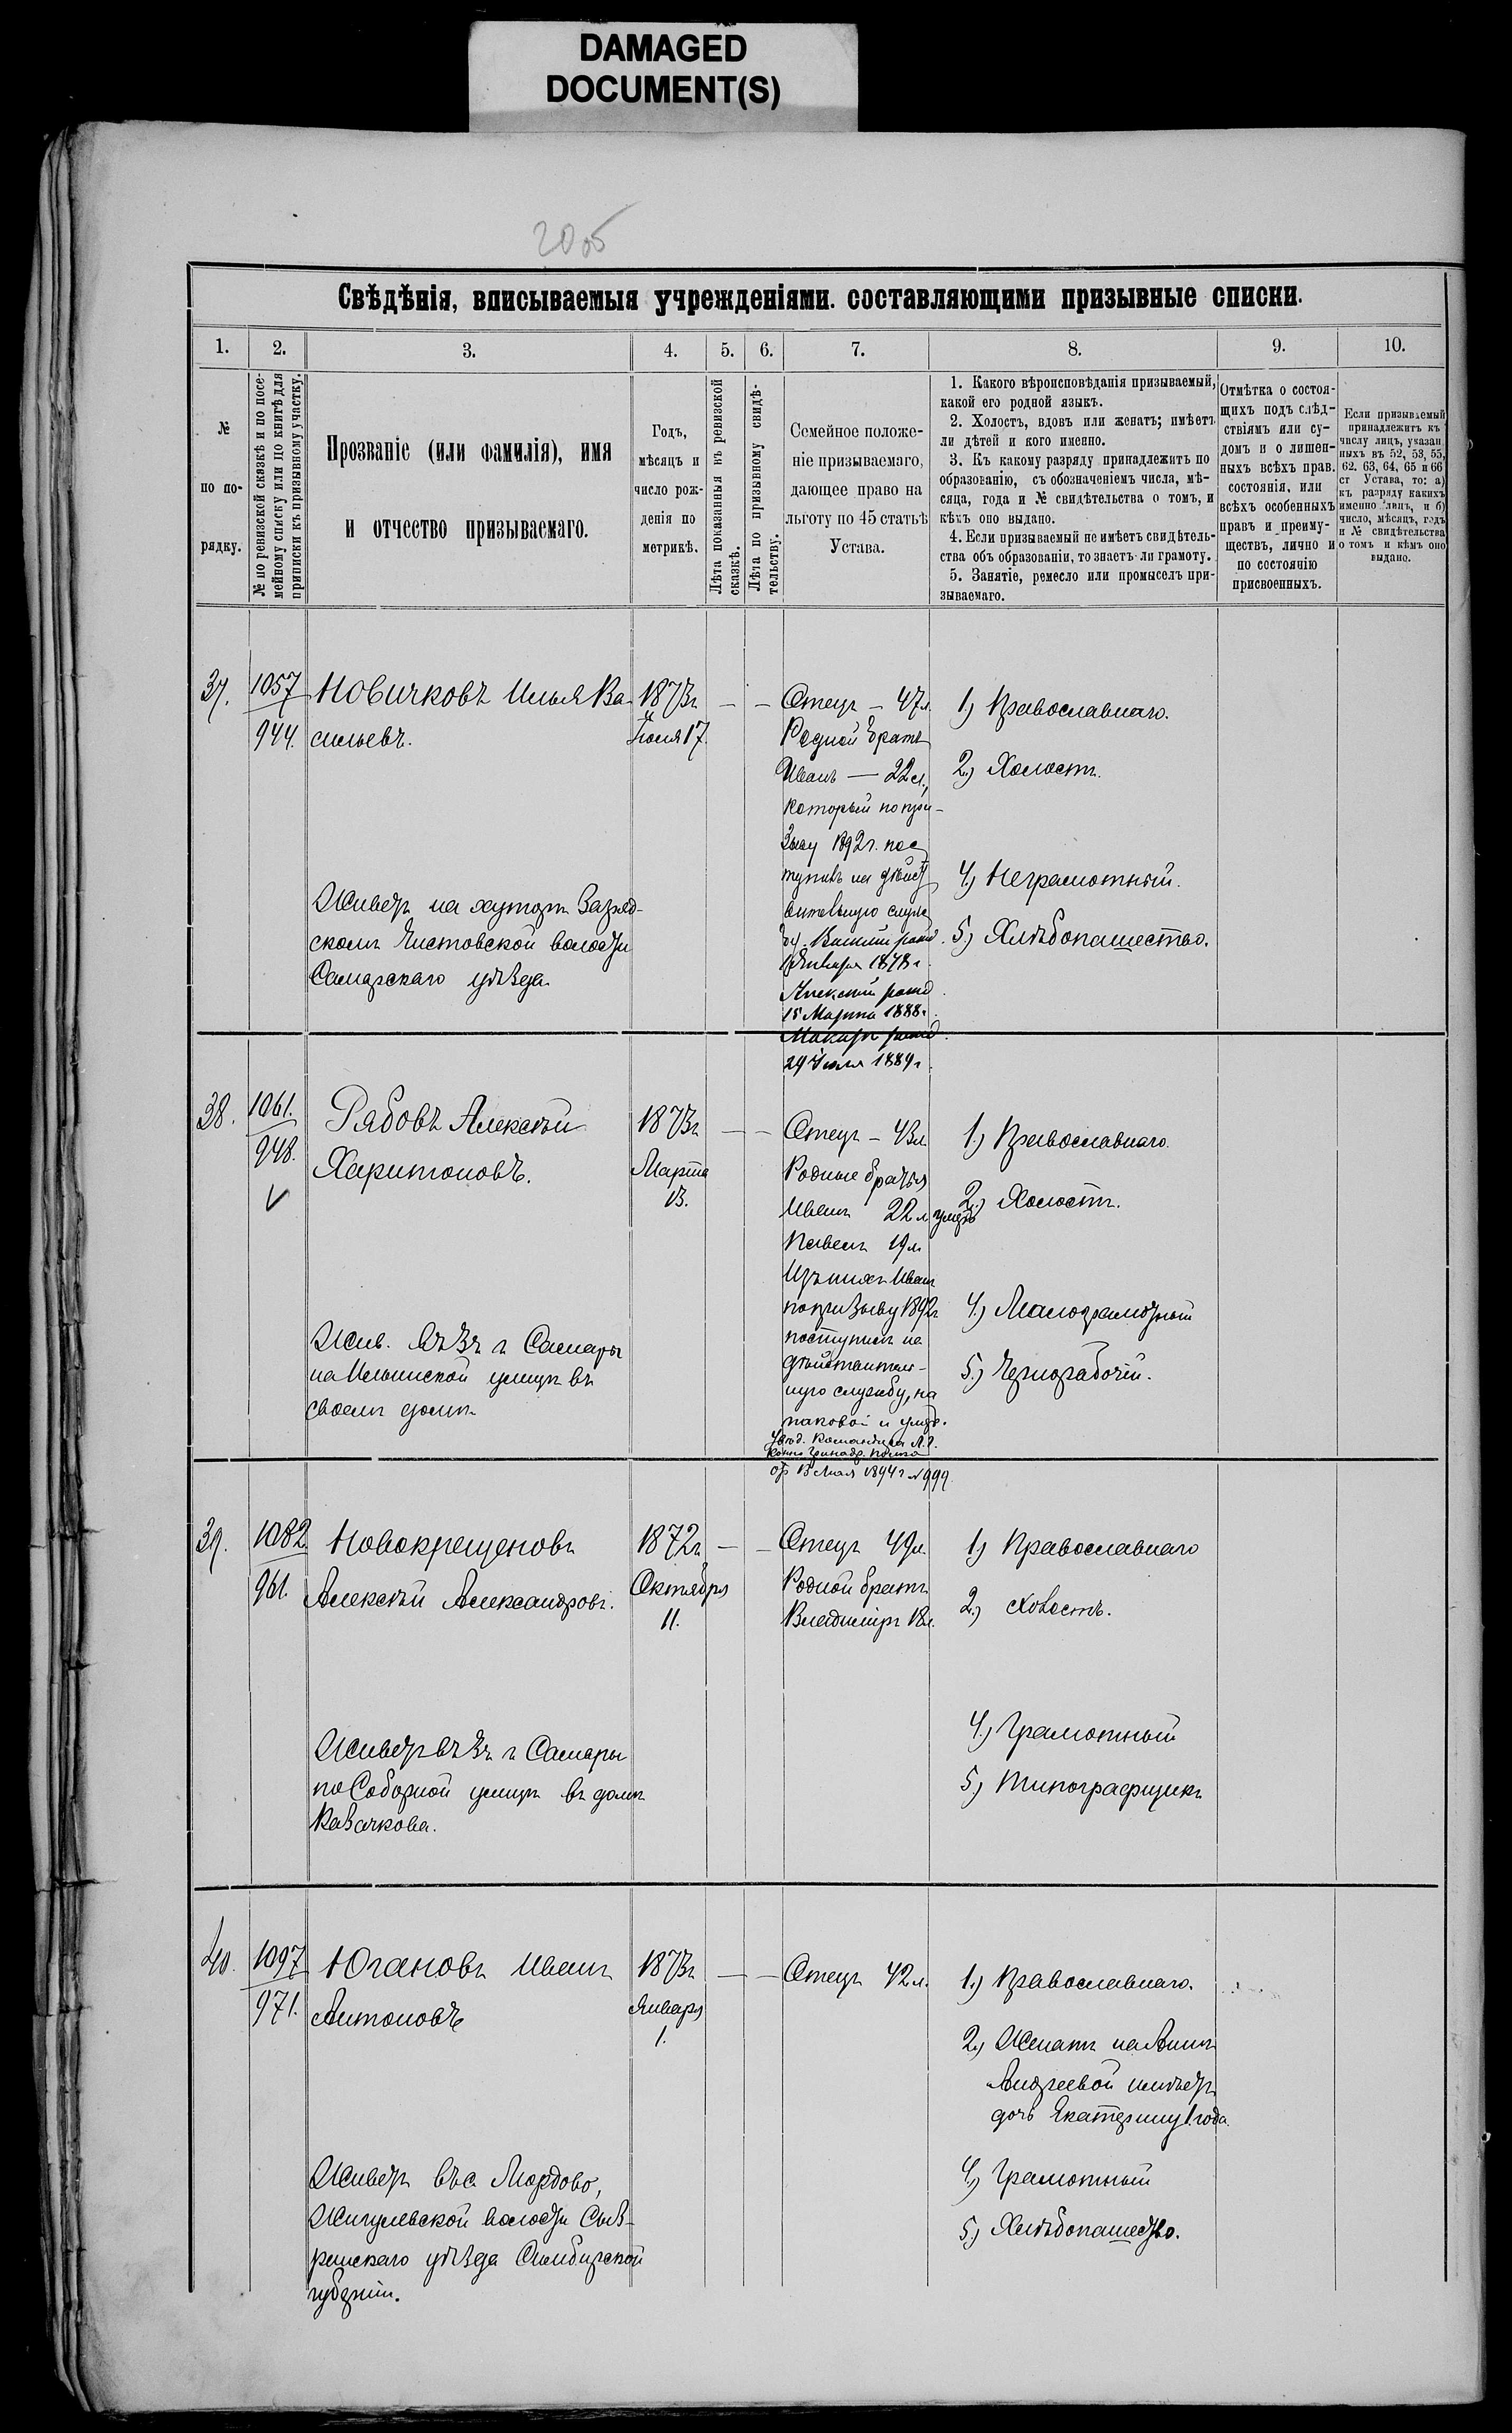 DAMAGED
DOCUMENT(S)
Свѣдѣнія, вписываемыя учрежденіями. составляющими призывные списки.
1. 2. 3. 4. 5. 6. 7. 8. 9. 10.
№
по по-
рядку.
№ по ревизской сказкѣ и по посе-
мейному списку или по книгѣ для
приписки къ призывному участку.
Прозваніе (или фамилія), имя
и отчество призываемаго.
Годъ,
мѣсяцъ и
число рож-
денія по
метрикѣ.
Лѣта показанныя въ ревизской
сказкѣ.
Лѣта по призывному свидѣ-
тельству.
Семейное положе-
ніе призываемаго,
дающее право на
льготу по 45 статьѣ
Устава.
1. Какого вѣроисповѣданія призываемый,
какой его родной языкъ.
2. Холостъ, вдовъ или женатъ; имѣетъ
ли дѣтей и кого именно.
3. Къ какому разряду принадлежитъ по
образованію, съ обозначеніемъ числа, мѣ-
сяца, года и № свидѣтельства о томъ, и
кѣмъ оно выдано.
4. Если призываемый не имѣетъ свидѣтель-
ства объ образованіи, то знаетъ-ли грамоту.
5. Занятіе, ремесло или промыселъ при-
зываемаго.
Отмѣтка о состоя-
щихъ подъ слѣд-
ствіямъ или су-
домъ и о лишен-
ныхъ всѣхъ прав.
состоянія, или
всѣхъ особенныхъ
правъ и преиму-
ществъ, лично и
по состоянію
присвоенныхъ.
Если призываемый
принадлежитъ къ
числу лицъ, указан
ныхъ въ 52, 53, 55,
62. 63, 64, 65 и 66
ст Устава, то: а)
къ разряду какихъ
именно лицъ, и б)
число, мѣсяцъ, годъ
и № свидѣтельства
о томъ и кѣмъ оно
выдано.
37.
1057
944.
Новичковъ Илья Ва
сильевъ.
Живетъ на хуторѣ
скомъ Чистовской волости
Самарскаго уѣзда.
1873г
Іюля 17.
Отецъ – 47л.
Родной братъ
Иванъ — 22л.,
который по при-
зыву 1892г. пос
тупивъ на дѣйст
вительную служ
бу. Василій рожд.
1 Января 1878г.
Алексѣй рожд.
15 Марта 1888г.
Макаръ рожд.
29 Іюля 1889г.
1) Православнаго.
2) Холостъ.
4) Неграмотный.
5.) Хлѣбопашество.
38.
1061.
948.
Рябовъ Алексѣй
Харитоновъ.
Жив. въ 3ч г Самары
на Ильинской улицѣ въ
своемъ домѣ
1873г
Марта
13.
Отецъ – 43л
Родные братья
Иванъ 22л умеръ
Павелъ 19л
Изъ нихъ Иванъ
по призыву 1892г
поступилъ на
дѣйствитель-
ную службу, на
каковой и умеръ.
Увѣд. Командира Л. Г.
Конно Гренадр. полка
отъ 13 Мая 1894г №999
1.) Православнаго.
2.) Холостъ.
4.) Малограмотный
5.) Чернорабочій.
39.
1082
961.
Новокрещеновъ
Алексѣй Александровъ.
Живетъ въ 3ч г Самары
по Соборной улицѣ въ домѣ
Казачкова.
1872г
Октября
11.
Отецъ 49л.
Родной братъ
Владиміръ 18л.
1) Православнаго
2.) Холостъ.
4.) Грамотный
5.) Типографщикъ
40.
1097
971.
Югановъ Иванъ
Антоновъ
Живетъ въ с. Мордово,
Жигулевской волости Сыз-
ранскаго уѣзда Симбирской
губерніи.
1873г
Января
1.
Отецъ 42л.
1.) Православнаго.
2.) Женатъ на Аннѣ
Андреевой имѣетъ
дочь Екатерину 1 года.
4.) Грамотный
5.) Хлѣбопашество.